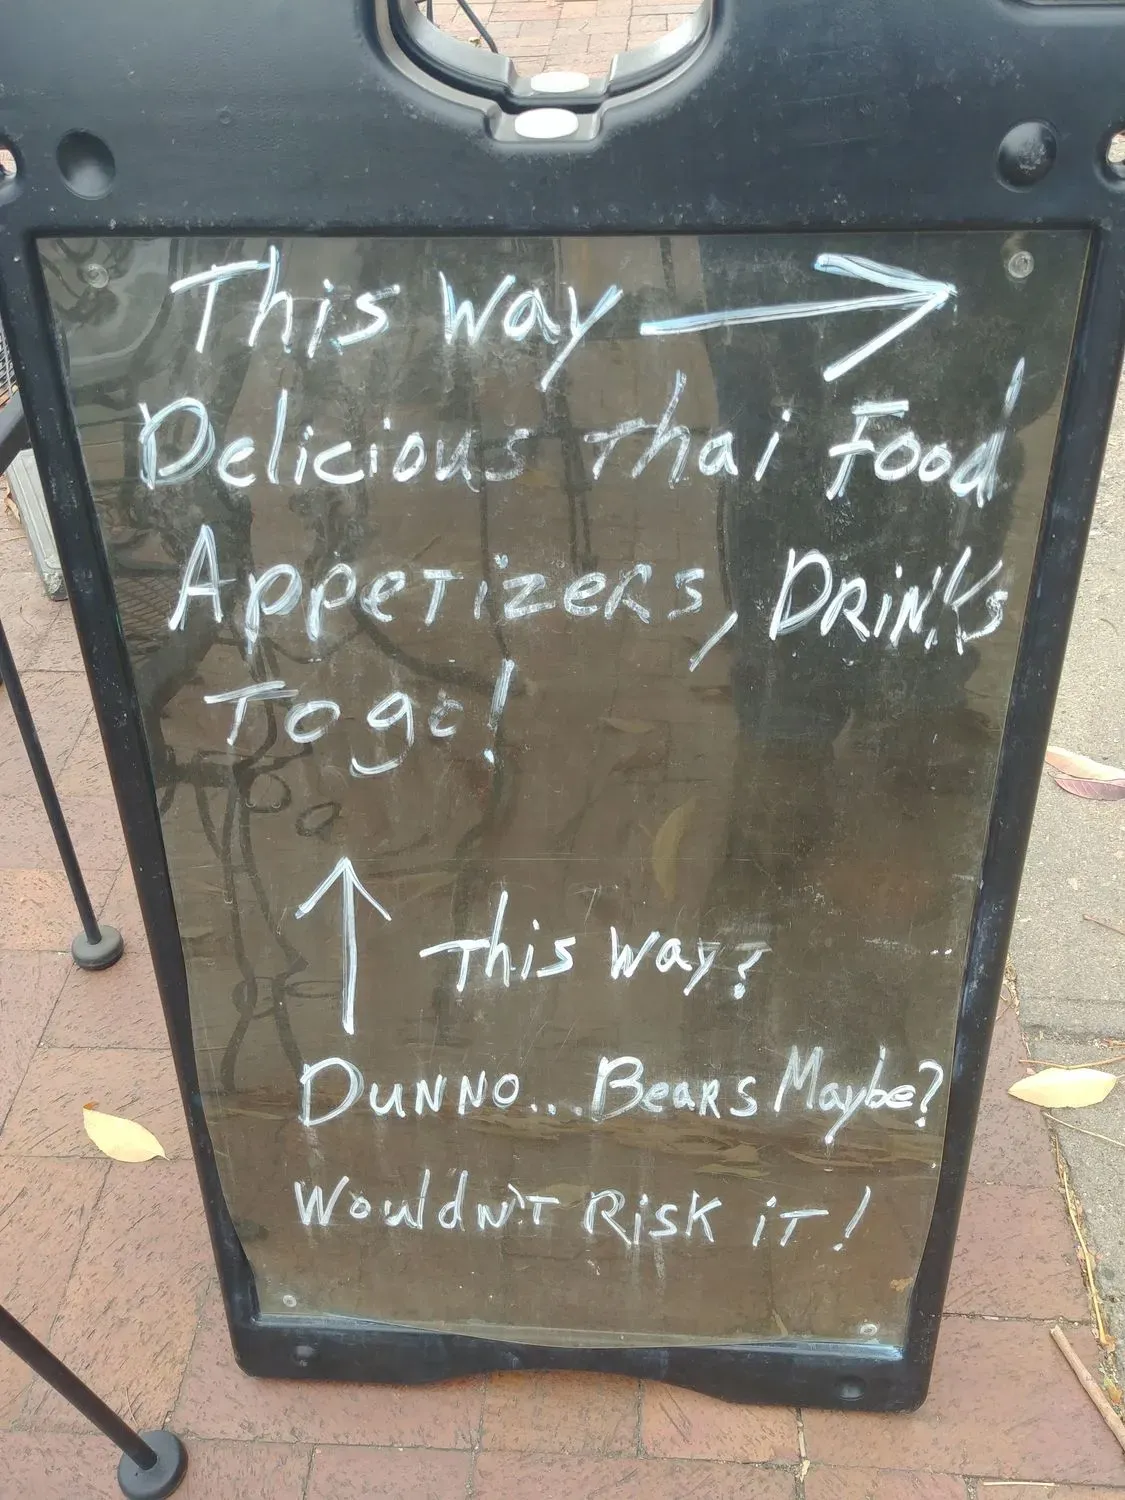 This Way →
Delicious Thai Food
Appetizers, Drinks
To go!
↑ This Way?
Dunno... Bears Maybe?
Wouldn't Risk it!